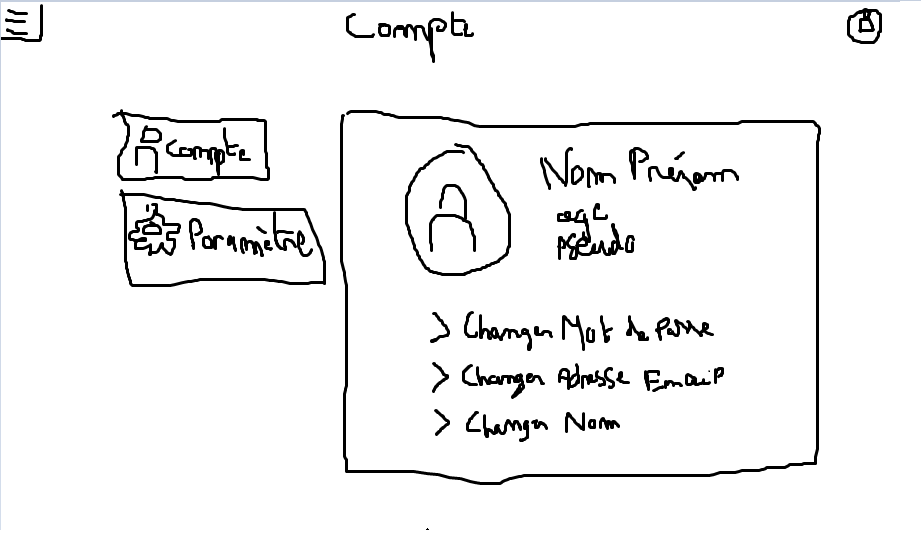 Compte
Compte
Paramètre
Nom Prénom
age
pseudo
> Changer Mot de Passe
> Changer Adresse Email
> Changer Nom